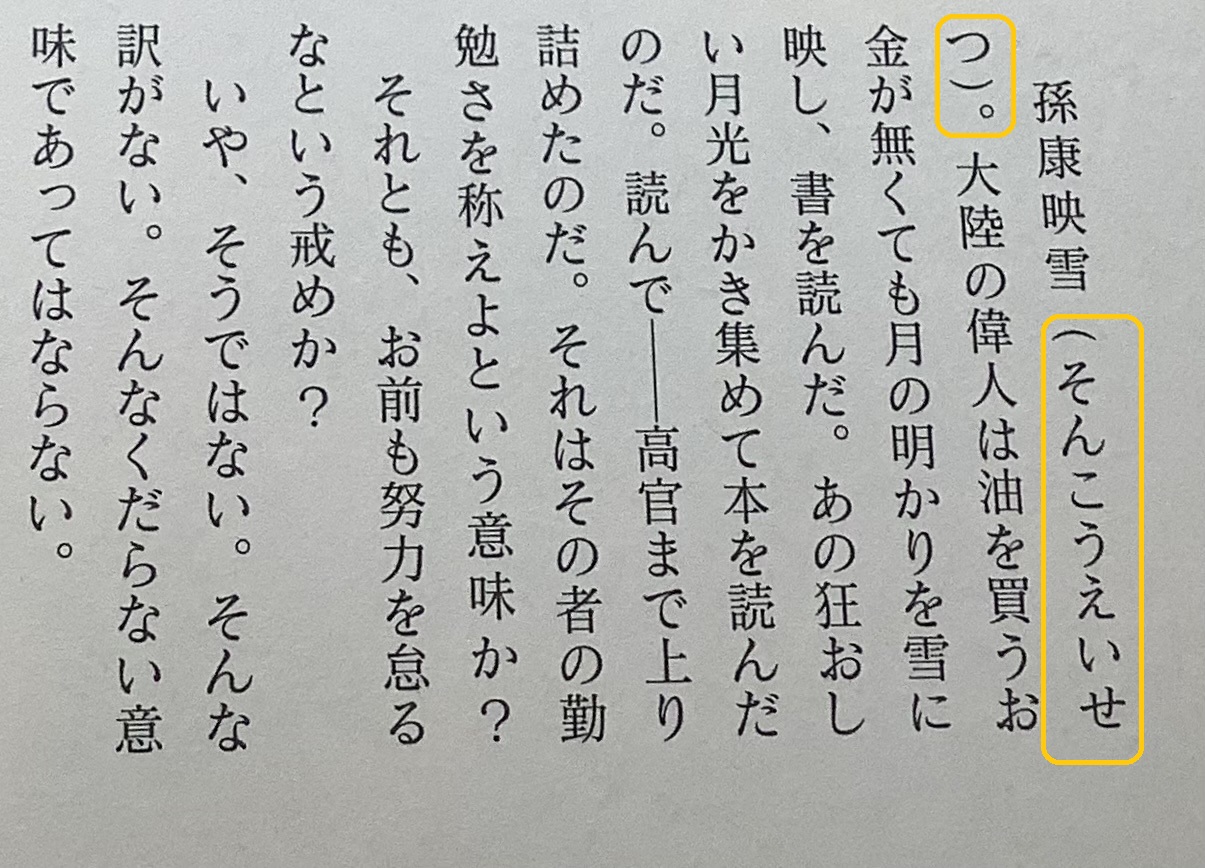 孫康映雪(そんこうえいせ
つ)。大陸の偉人は油を買うお
金が無くても月の明かりを雪に
映し、書を読んだ。あの狂おし
い月光をかき集めて本を読んだ
のだ。読んで――高官まで上り
詰めたのだ。それはその者の勤
勉さを称えよという意味か?
それとも、お前も努力を怠る
なという戒めか?
いや、そうではない。そんな
訳がない。そんなくだらない意
味であってはならない。